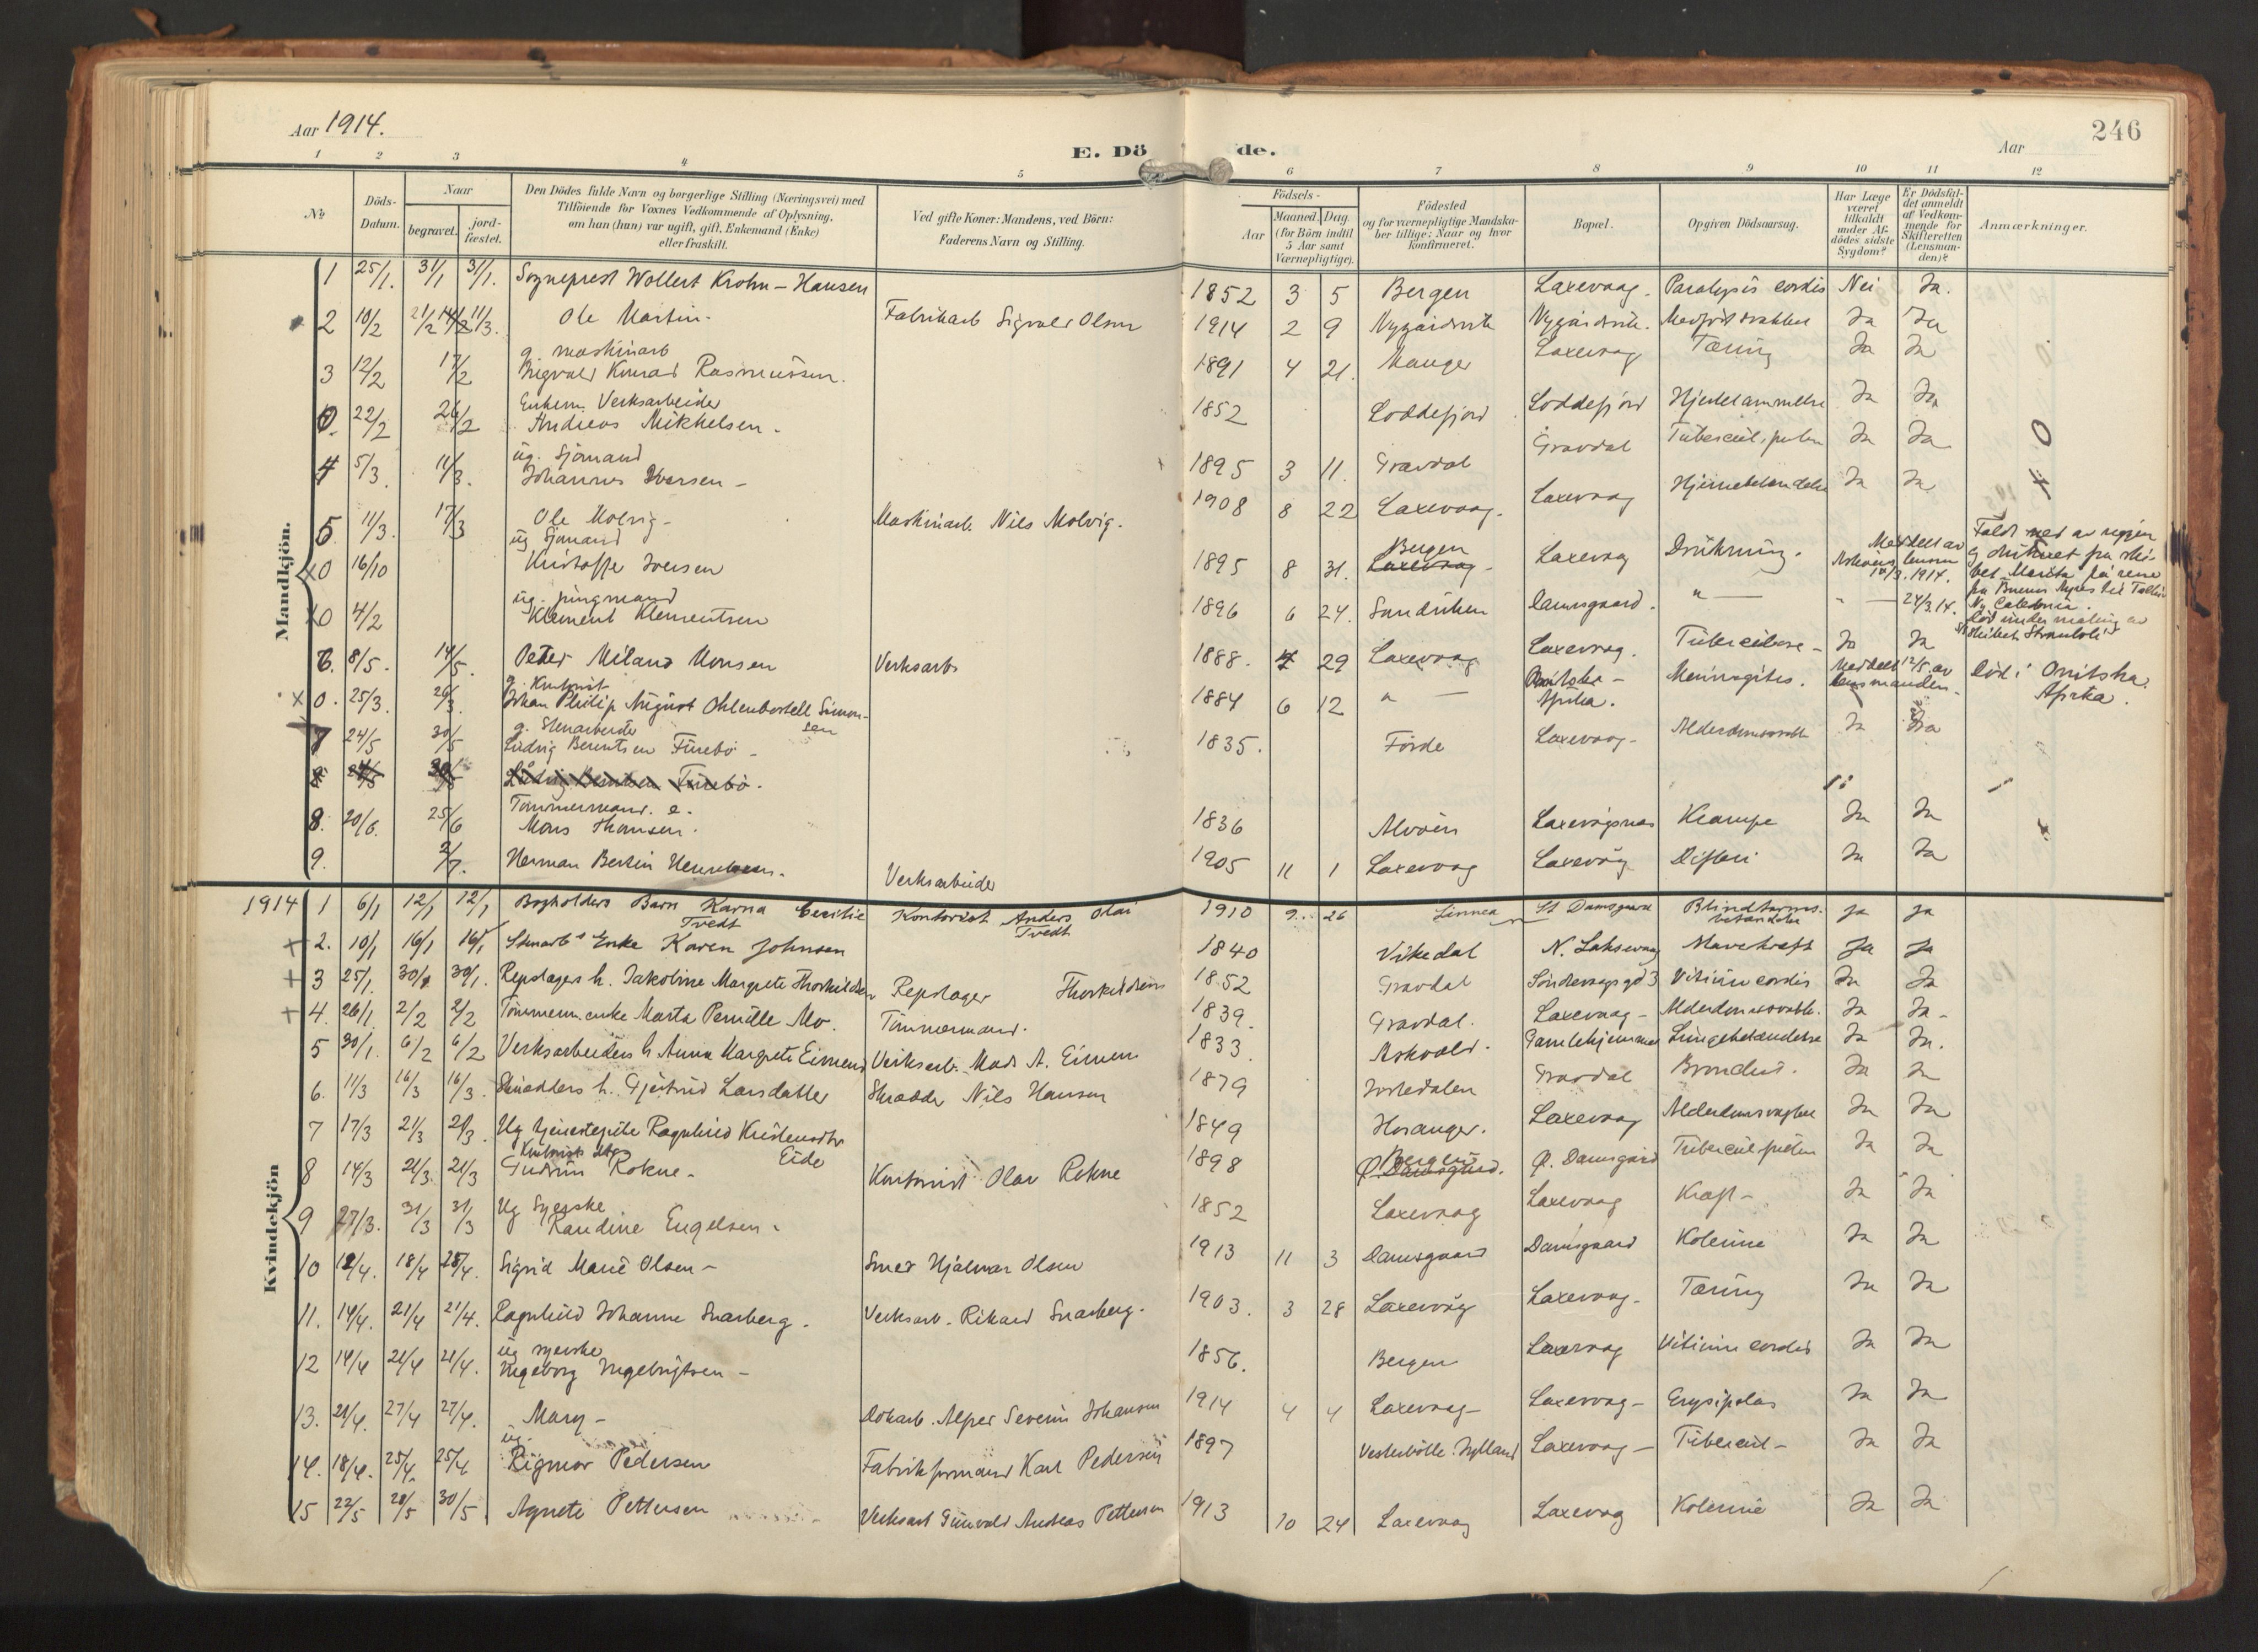 Aar 1914.
E. Döde.
Aar
246
1 2 3 4 5 6 7 8 9 10 11 12
№
Döds-Datum.
Naar
begravet.
jord-fæstet.
Den Dödes fulde Navn og borgerlige Stilling (Næringsvei) med
Tilföiende for Voxnes Vedkommende af Oplysning,
om han (hun) var ugift, gift, Enkemand (Enke)
eller fraskilt.
Ved gifte Koner: Mandens, ved Börn:
Faderens Navn og Stilling.
Födsels-
Aar
Maaned. Dag.
(for Börn indtil
5 Aar samt
Værnepligtige).
Födested
og for værnepligtige Mandska-
ber tillige: Naar og hvor
konfirmeret.
Bopæl.
Opgiven Dödsaarsag.
Har Læge
været
tilkaldt
under Af-
dödes sidste
Sygdom?
Er Dödsfal-
det anmeldt
af Vedkom-
mende for
Skifteretten
(Lensman-
den)?
Anmærkninger.
Mandkjön.
1 25/1. 31/1 31/1. Sogneprest Wollert Krohn-Hansen 1852 3 5 Bergen Laxevaag. Paralysis cordis Nei Ja.
2 10/2 21/2 11/3. Ole Martin. Fabrikarb Sigvald Olsen 1914 2 9 Nygårdsvik Nygårdsvik. Medfødt svakhet Ja Ja
g. maskinarb
3 12/2 17/2 Ingvald Konrad Rasmussen. 1891 4 21. Manger Laxevaag Tæring Ja Ja
Enkem. Verksarbeider
0. 22/2 26/2 Andreas Mikkelsen. 1852 Loddefjord Loddefjord Hjertelammelse Ja Ja
ug. Sjömand
4 5/3. 11/3. Johannes Iversen 1895 3 11. Gravdal Gravdal Ja Ja
5 11/3. 17/3 Ole Molvig Maskinarb. Nils Molvig. 1908 8 22 Laxevaag. Laxevaag Hjernebetændelse Ja Ja
ug Sjömand
x0 16/10 Kristoffer Iversen 1895 8 31. Bergen Laxevaag Drukning. Meddelt av Askvins lensm 14/3. 1914. Faldt ned av riggen
og druknet fra ski-
bet Marita på reise
fra Buenos Ayres til
Ny Caledonia.
ug. jungmand
x0 4/2 Klement Klementsen 1896 6 24. Sandviken Damsgaard. " 24/3.14. Död under maling av
Skibet Stromboli
6. 8/5. 14/5. Peder Miland Monsen Verksarb 1888. 7 29 Laxevaag Laxevaag. Tuberculose Ja Ja
g. Kontorist
x 0. 25/3. 26/3. Johan Philip August Ohlenbostell Simonsen 1884 6 12 " Onitsha - Afrika. Meningitis. Meddelt 12/5. av lensmanden Död i Onitsha. Afrika.
g. Stenarbeider
7 24/5 30/5 Ludvig Berentsen Furebö 1835. Förde Laxevaag. Alderdomssvakh Ja Ja
8 24/5 30/5 Ludvig Berentsen Furebö.
Tömmermand. e.
8. 20/6. 25/6 Mons Hansen. 1836 Alvöen Laxevågsnes Krampe Ja Ja
9. 2/7. Herman Bertin Henriksen. Verksarbeider 1905 11 1 Laxevaag Laxevåg Difteri Ja Ja
Kvindekjön
1914 1 6/1 12/1 12/1 Bogholders Barn Karna Cecilie Tvedt Kontorist Anders Olai Tvedt 1910 9. 26 St Damsgaard Blindtarmsbetændelse ja ja
+ 2. 10/1 16/1 16/1 Stenarb's Enke Karen Johnsen 1840 Vikedal N. Laksevaag Mavekræft Ja Ja
+ 3 25/1. 30/1 30/1. Repslagers h. Jakobine Margrete Thorkildsen Repslager Thorkildsen 1852 Gravdal Vitium cordis Ja Ja
+ 4. 26/1. 2/2 2/2 Tömmerm. enke Marta Pernille Mo. Tömmermand. 1839. Gravdal. Laxevaag Alderdomssvakh. Ja Ja
5 30/1. 6/2 6/2 Verksarbeiders h Anna Margrete Eimen Verksarb. Mads A. Eimen 1833. Askvold. Gamlehjemmet Lungebetændelse Ja Ja.
6. 11/3 16/3 16/3. Skrædders h. Gjertrud Larsdatter Skrædder Nils Hansen 1879 Jostedalen Gravdal Ja Ja
7 17/3 21/3 21/3. Ug tjenestepike Ragnhild Kristensdtr Eide 1849 Hosanger. Laxevaag Alderdomssvaghet Ja Ja
Kontorist dtr
8 14/3 21/3 21/3 Gudrun Rokne. Kontorist Olav Rokne 1898 Bergen Ø. Damsgård. Ø. Damsgård Ja Ja
Ug Syerske
9 27/3. 31/3 31/3 Randine Engelsen. 1852 Laxevaag Laxevaag Kræft Ja Ja
10 12/4. 18/4 28/4. Sigrid Marie Olsen Smed Hjalmar Olsen 1913 11 3 Damsgaard Damsgaard Kolerine Ja Ja
11. 14/4. 21/4 21/4. Ragnhild Johanne Snarberg. Verksarb. Rikard Snarberg. 1903. 3 28 Laxevåg Laxevaag. Tæring Ja Ja
ug syerske
12 14/4 21/4 21/4. Ingeborg Ingebrigtsen 1856. Bergen Laxevaag Vitium cordis Ja Ja
13. 21/4. 27/4 27/4. Mary Dokarb. Alfred Severin Johansen 1914 4 4 Laxevaag Laxevaag Erysipelas Ja Ja
ug.
14. 18/4. 25/4. 25/4 Rigmor Pedersen Fabrikformand Karl Pedersen 1897 Vesterbölle Jylland Laxevaag Tubercul Ja Ja
15 22/5 28/5 30/5. Agnete Pettersen Verksarb Gunvald Andreas Pettersen 1913 10 24 Laxevaag Laxevaag Kolerine Ja Ja